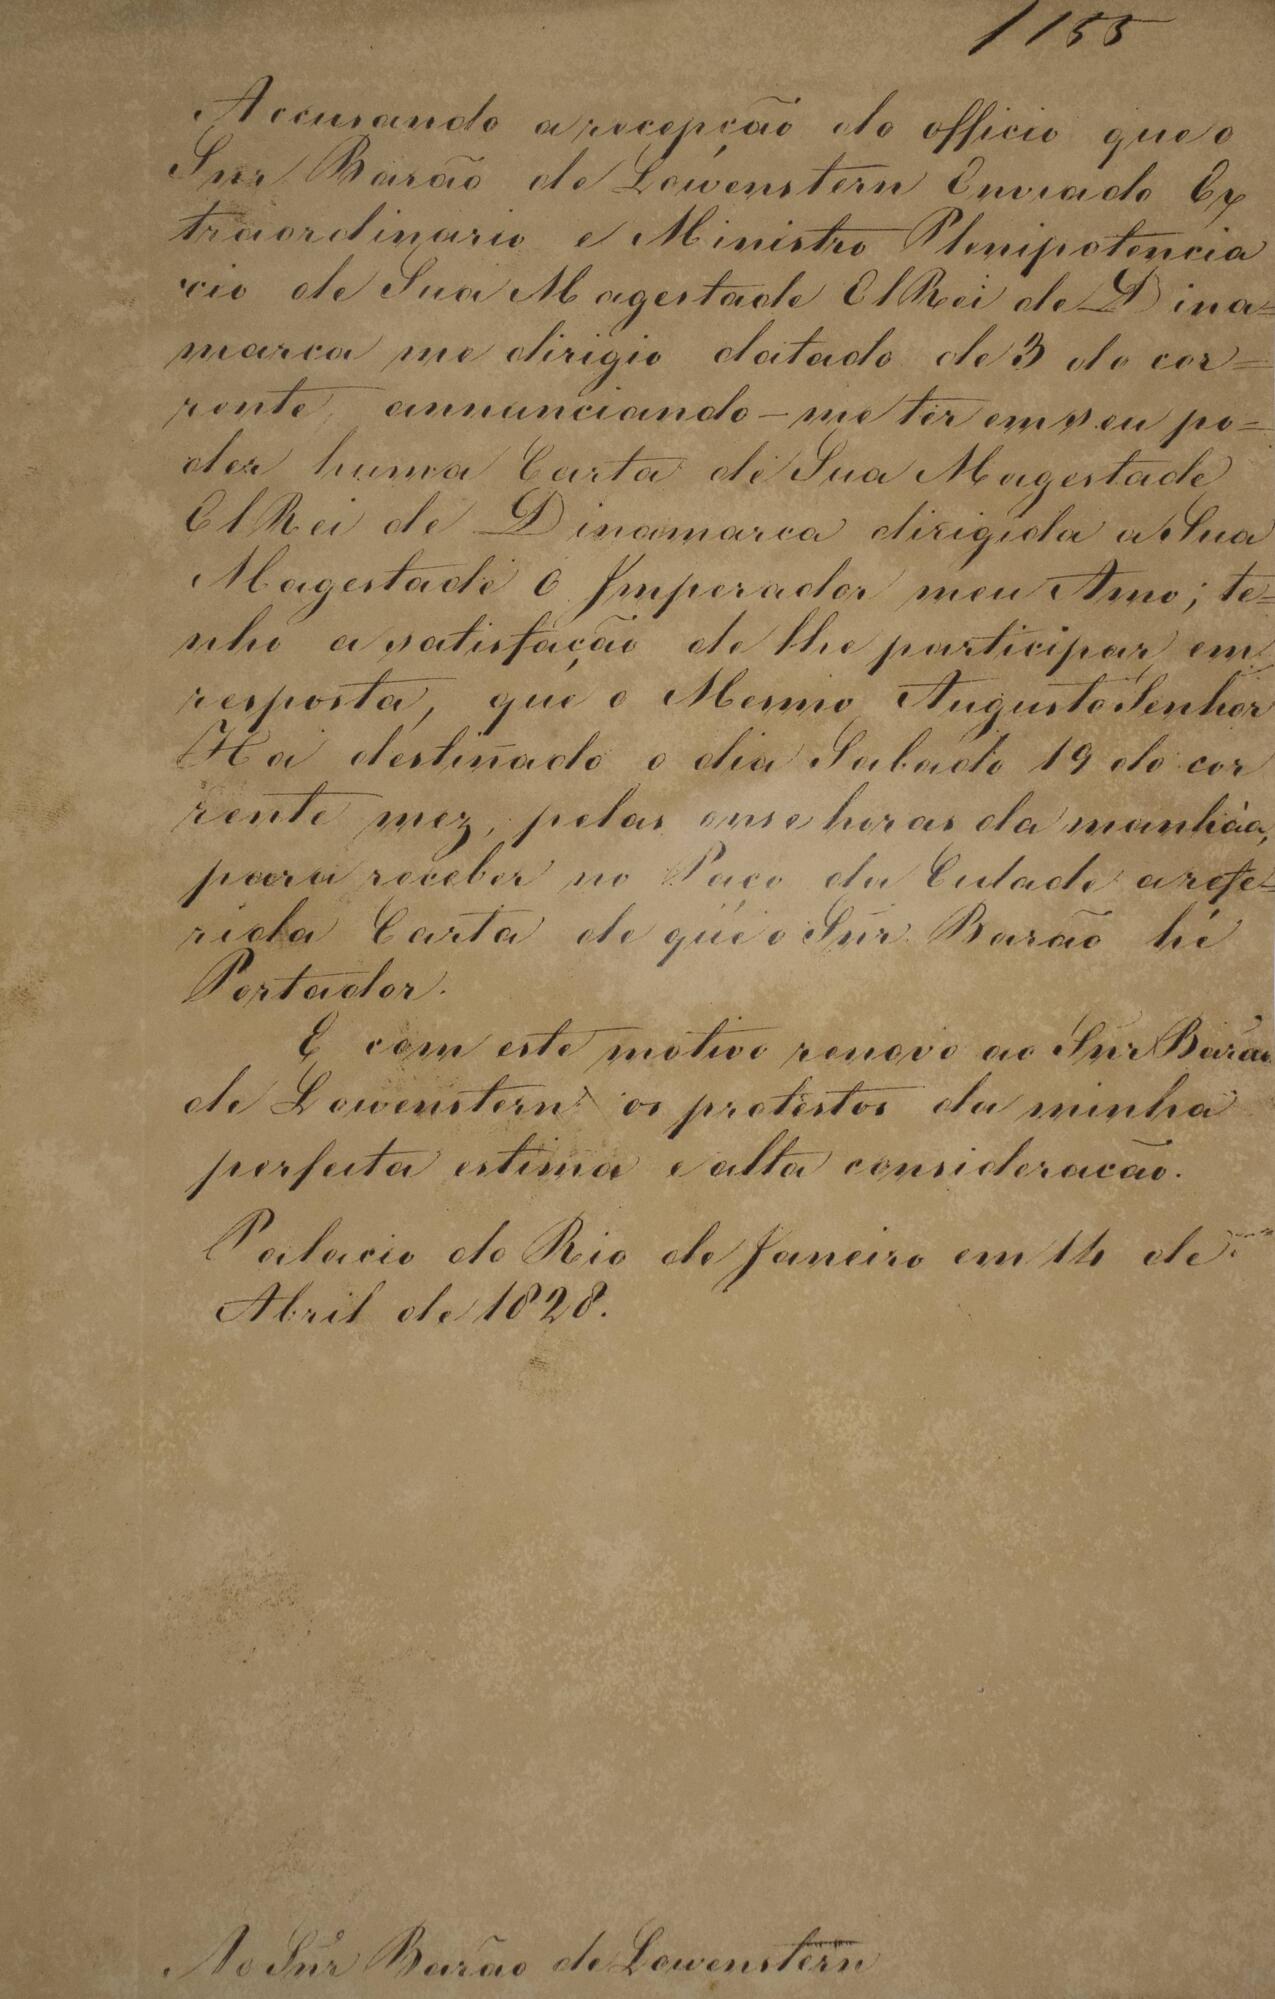 1155
Accusando a recepção do officio que o
Snr Barão de Lowenstern Enviado Ex
traordinario e Ministro Plenipotencia
rio de Sua Magestade ElRei de Dina=
marca me dirigio datado de 3 do cor=
rente, annunciando-me ter em seu po=
der huma Carta de Sua Magestade
ElRei de Dinamarca dirigida a Sua
Magestade O Imperador meu Amo; te=
nho a satisfação de lhe participar em
resposta, que o Mesmo Augusto Senhor
Ha destinado o dia Sabado 19 do cor
rente mez, pelas onse horas da manhãa,
para receber no Paço da Cidade a refe=
rida Carta de que o Snr. Barão hé
Portador.
E com este motivo renovo ao Snr Barão
de Lowenstern os protestos da minha
perfeita estima e alta consideracão.
Palacio do Rio de Janeiro em 14 de
Abril de 1828.
Ao Snr Barão de Lowenstern